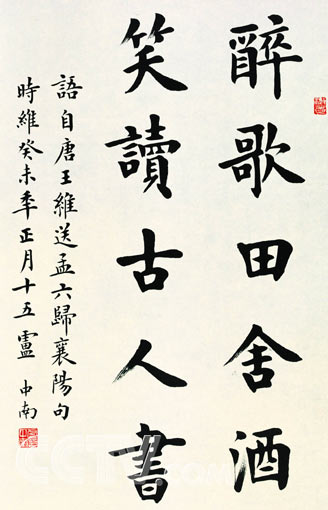 醉歌田舍酒
笑讀古人書
語自唐王維送孟六歸襄陽句
時維癸未季正月十五盧中南
CCTV.COM